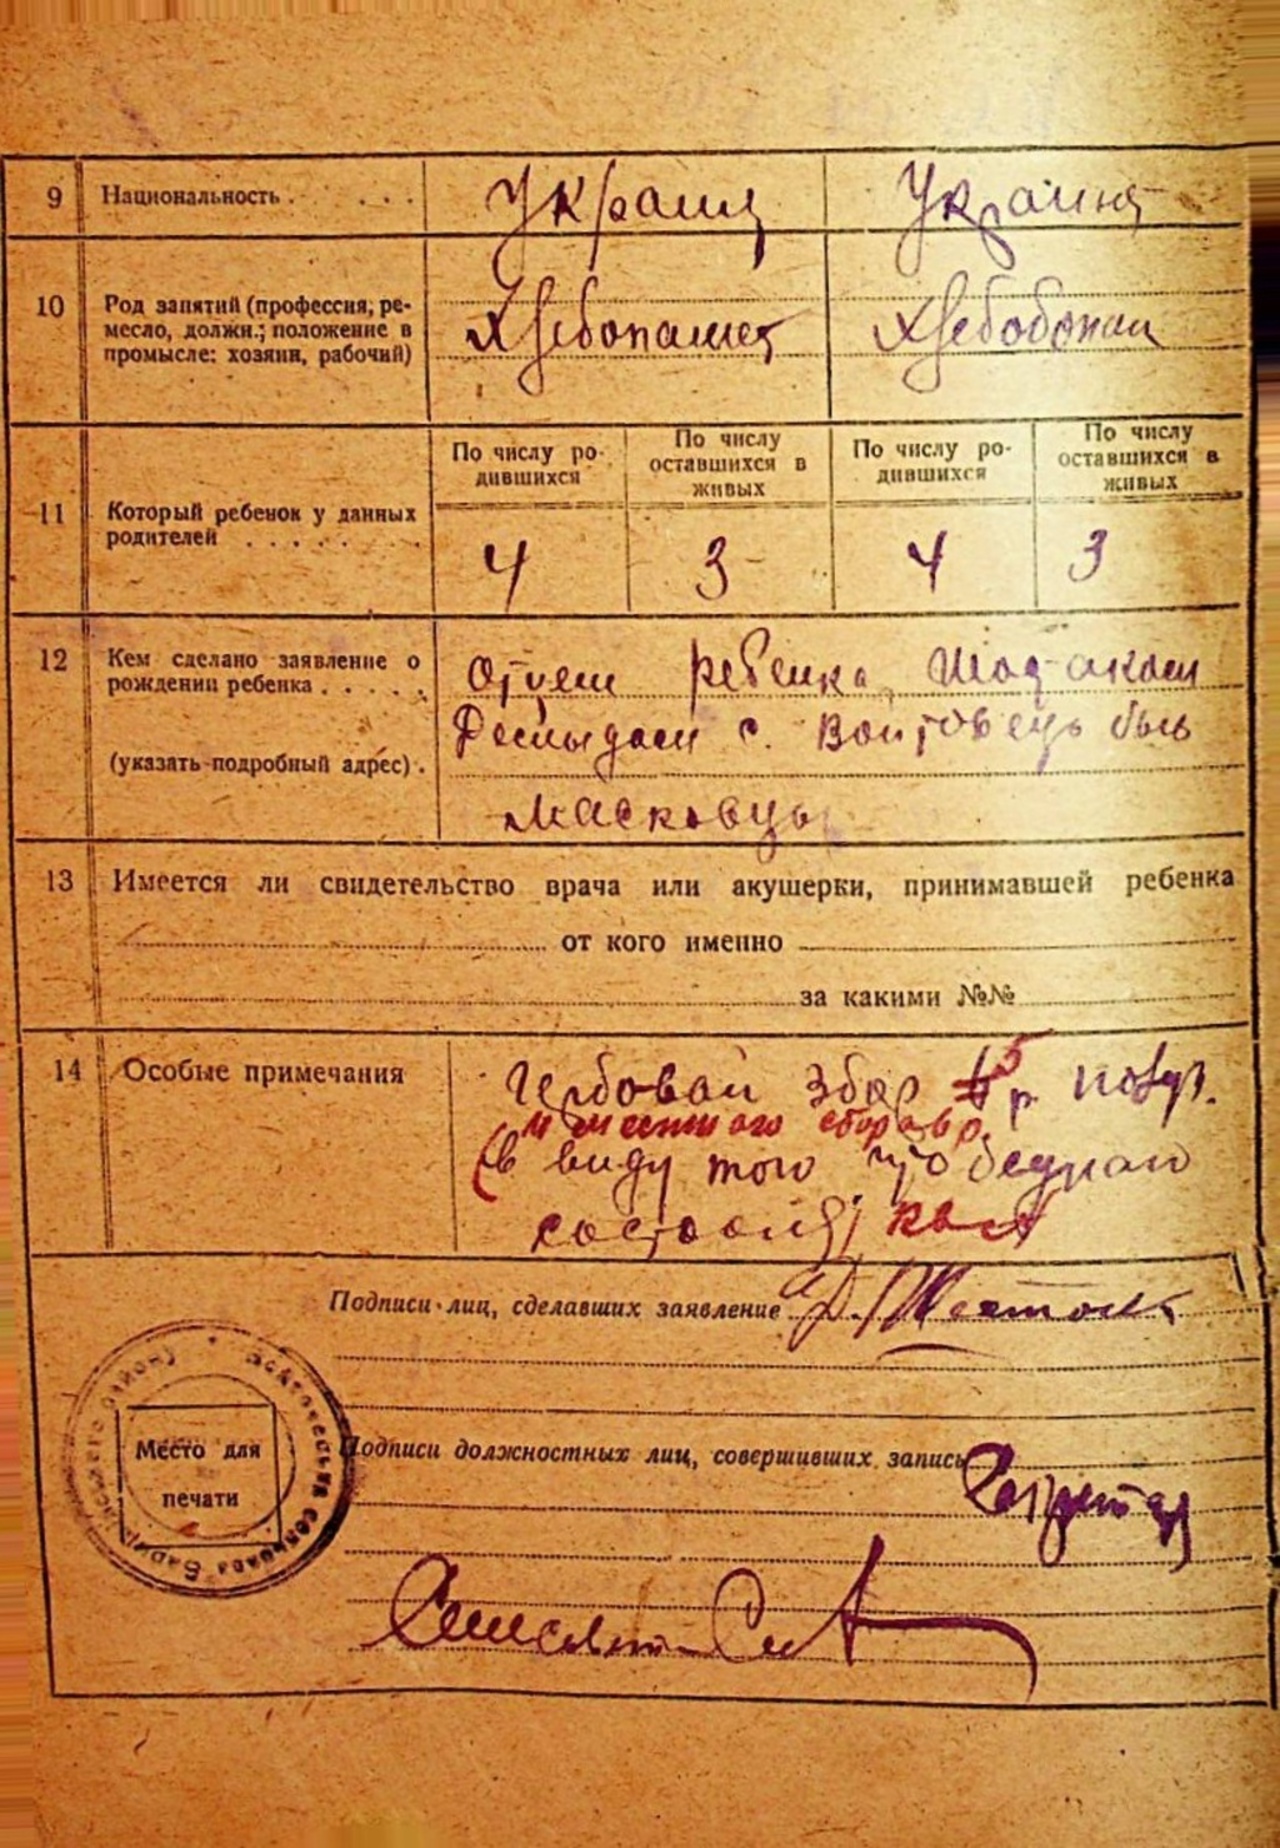 9 Национальность . . . . Украиц Украинц
10 Род занятий (профессия, ре-
месло, должн.; положение в
промысле: хозяин, рабочий)
Хлебопашец
11 Который ребенок у данных
родителей . . . . . . . .
По числу ро-
дившихся
По числу
оставшихся в
живых
По числу ро-
дившихся
По числу
оставшихся в
живых
4 3 4 3
12 Кем сделано заявление о
рождении ребенка . . . . .
(указать подробный адрес) .
Отцем ребенка
с. Войтовець
Масковцы
13 Имеется ли свидетельство врача или акушерки, принимавшей ребенка
от кого именно
за какими №№
14 Особые примечания
Гербовай збор 5 р.
и местного сбора
(в виду того что бедного
Подписи лиц, сделавших заявление
Подписи должностных лиц, совершивших запись
Секретар
Место для
печати